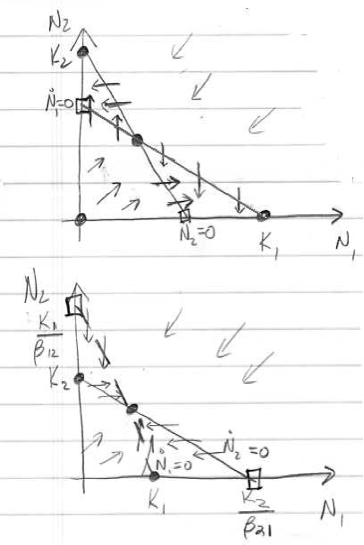 N₂
K₂
Ṅ₁=0
Ṅ₂=0
K₁
N₁
N₂
K₁
β₁₂
K₂
Ṅ₂=0
Ṅ₁=0
K₁
K₂
β₂₁
N₁